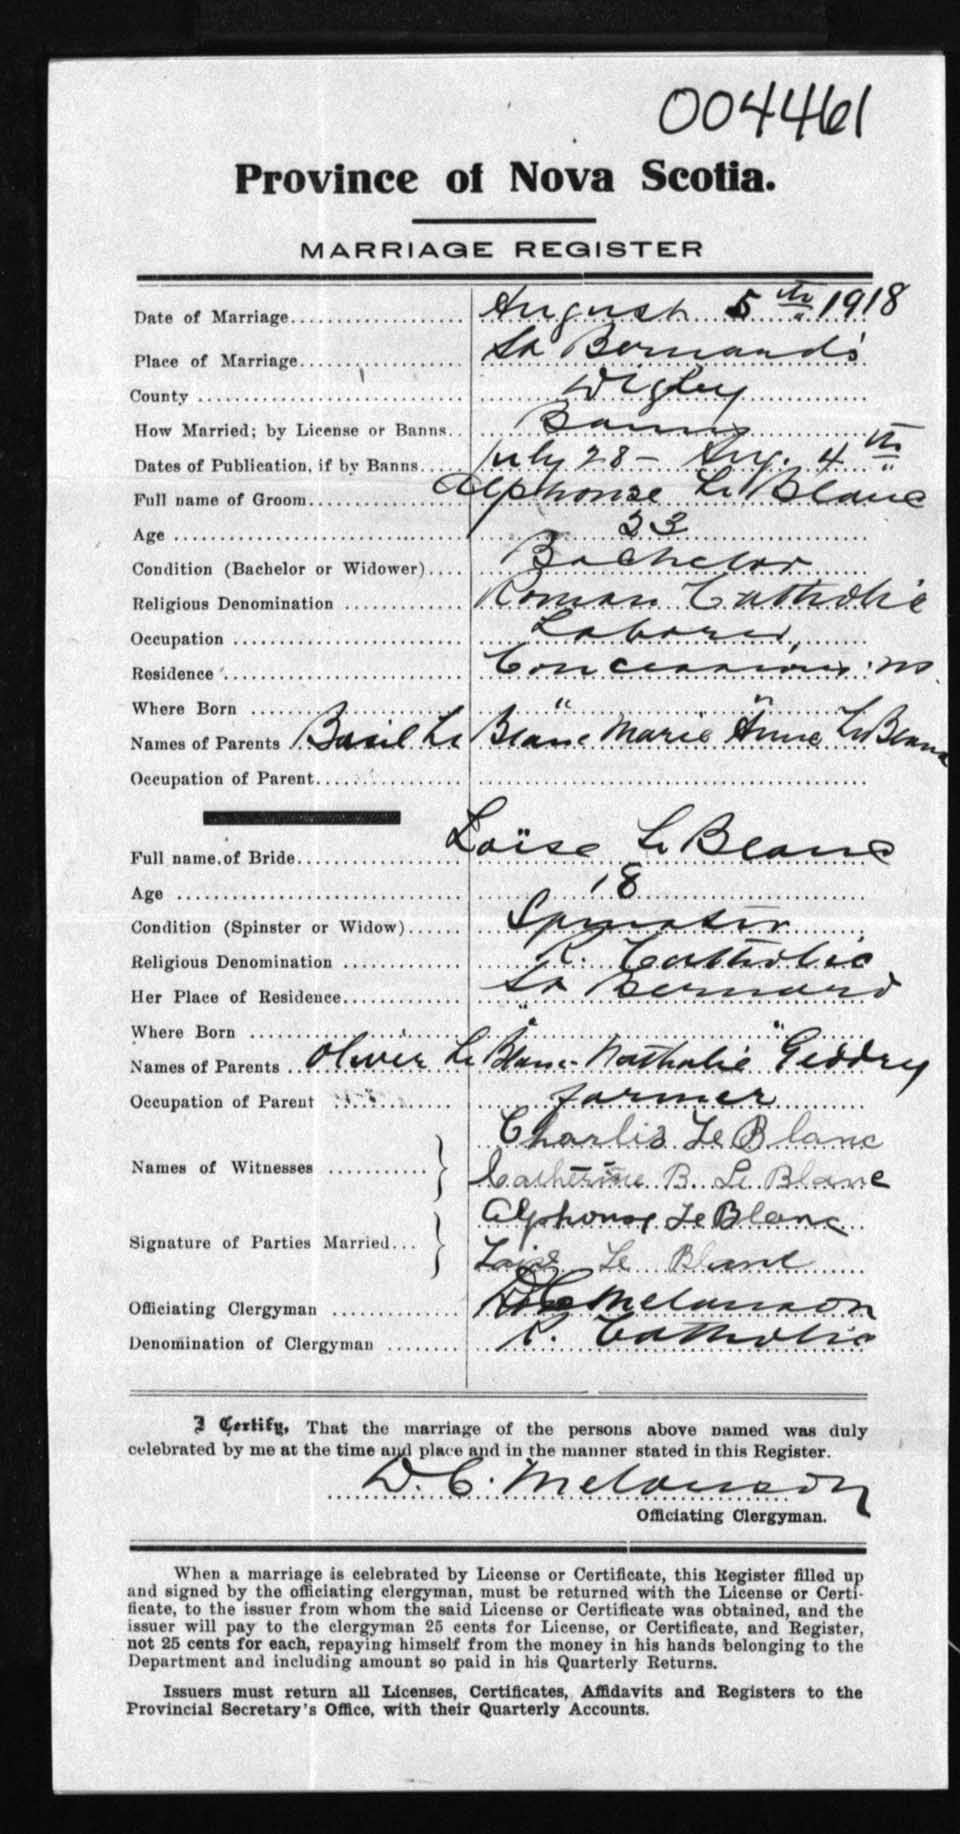 004461
Province of Nova Scotia.
MARRIAGE REGISTER
Date of Marriage.................... August 5th 1918
Place of Marriage................... St Bernard's
County ............................ Digby
How Married; by License or Banns.. Banns
Dates of Publication, if by Banns.... July 28 - Aug. 4th
Full name of Groom................. Alphonse Le Blanc
Age ............................... 23
Condition (Bachelor or Widower).... Bachelor
Religious Denomination ............. Roman Catholic
Occupation ........................ Laborer
Residence ......................... Concession NS.
Where Born ....................... " "
Names of Parents Basil Le Blanc Marie Anne LeBlanc
Occupation of Parent................
Full name of Bride.................. Loïse Le Blanc
Age ............................... 18
Condition (Spinster or Widow)...... Spinster
Religious Denomination ............. R. Catholic
Her Place of Residence............. St Bernard
Where Born ....................... " "
Names of Parents .. Oliver Le Blanc Nathalie Geddry
Occupation of Parent ............. farmer
Charlie Le Blanc
Names of Witnesses ...........
Catherine B. Le Blanc
Alphonse LeBlanc
Signature of Parties Married...
Loise Le Blanc
Officiating Clergyman .............. D.C. Melanson
Denomination of Clergyman ........ R. Catholic
I Certify, That the marriage of the persons above named was duly
celebrated by me at the time and place and in the manner stated in this Register.
D. C. Melanson
Officiating Clergyman.
When a marriage is celebrated by License or Certificate, this Register filled up
and signed by the officiating clergyman, must be returned with the License or Certi-
ficate, to the issuer from whom the said License or Certificate was obtained, and the
issuer will pay to the clergyman 25 cents for License, or Certificate, and Register,
not 25 cents for each, repaying himself from the money in his hands belonging to the
Department and including amount so paid in his Quarterly Returns.
Issuers must return all Licenses, Certificates, Affidavits and Registers to the
Provincial Secretary's Office, with their Quarterly Accounts.